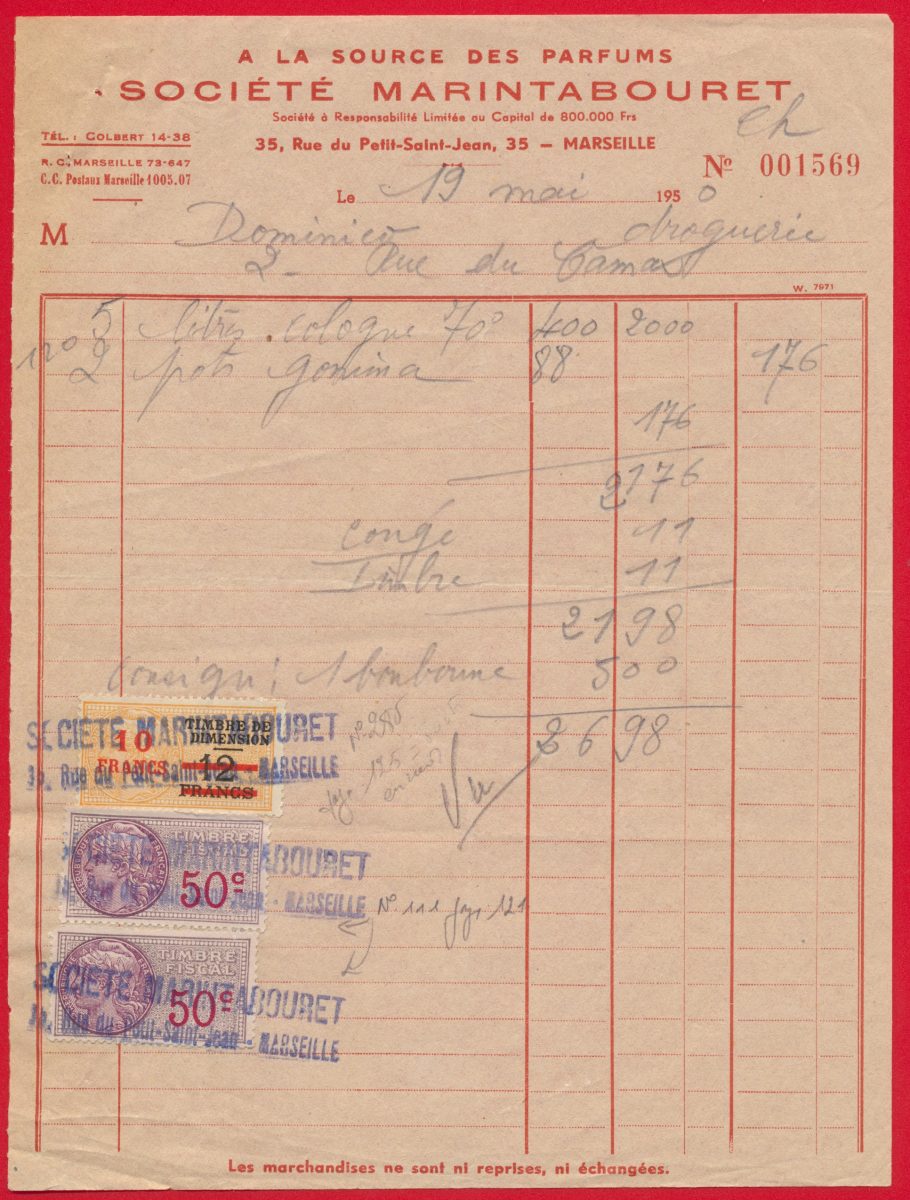 A LA SOURCE DES PARFUMS
SOCIÉTÉ MARINTABOURET
Société à Responsabilité Limitée au Capital de 800.000 Frs
TÉL. : COLBERT 14-38
35, Rue du Petit-Saint-Jean, 35 – MARSEILLE
R. C. MARSEILLE 73-647
C.C. Postaux Marseille 1005.07
Nº 001569
Le 19 mai 1950
M Dominico droguerie
2 - Rue du Camas
W. 7971
5 litres cologne 70° 400 2000
120 2 pots gomina 88 176
176
2176
congé 11
Timbre 11
2198
Consigné 1 bonbonne 500
2698
10 FRANCS
TIMBRE DE DIMENSION
12 FRANCS
SOCIETE MARINTABOURET
35, Rue du Petit-Saint-Jean - MARSEILLE
TIMBRE FISCAL
50c
SOCIETE MARINTABOURET
35, Rue du Petit-Saint-Jean - MARSEILLE
Nº 111 121
TIMBRE FISCAL
50c
SOCIETE MARINTABOURET
35, Rue du Petit-Saint-Jean - MARSEILLE
Les marchandises ne sont ni reprises, ni échangées.